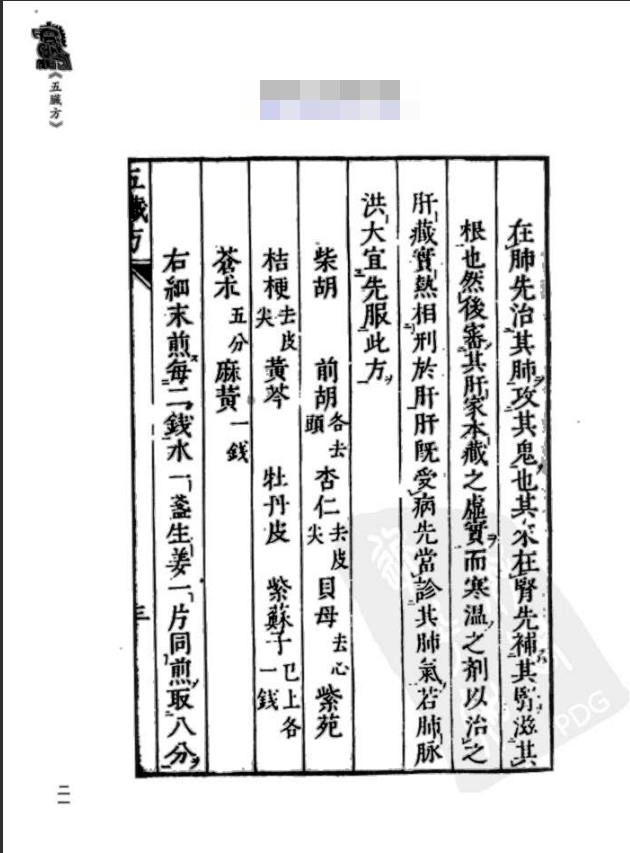 《五臟方》
在肺先治其肺攻其鬼也其來在腎先補其腎滋其
根也然後審其肝家本藏之虛實而寒溫之劑以治之
肝藏實熱相刑於肝肝既受病先當診其肺氣若肺脈
洪大宜先服此方
柴胡 前胡各去頭 杏仁去皮尖 貝母去心 紫苑
桔梗去皮尖 黃芩 牡丹皮 紫蘇子已上各一錢
蒼朮五分 麻黃一錢
右細末煎每二錢水一盞生姜一片同煎取八分
五臟方
二一
PDG